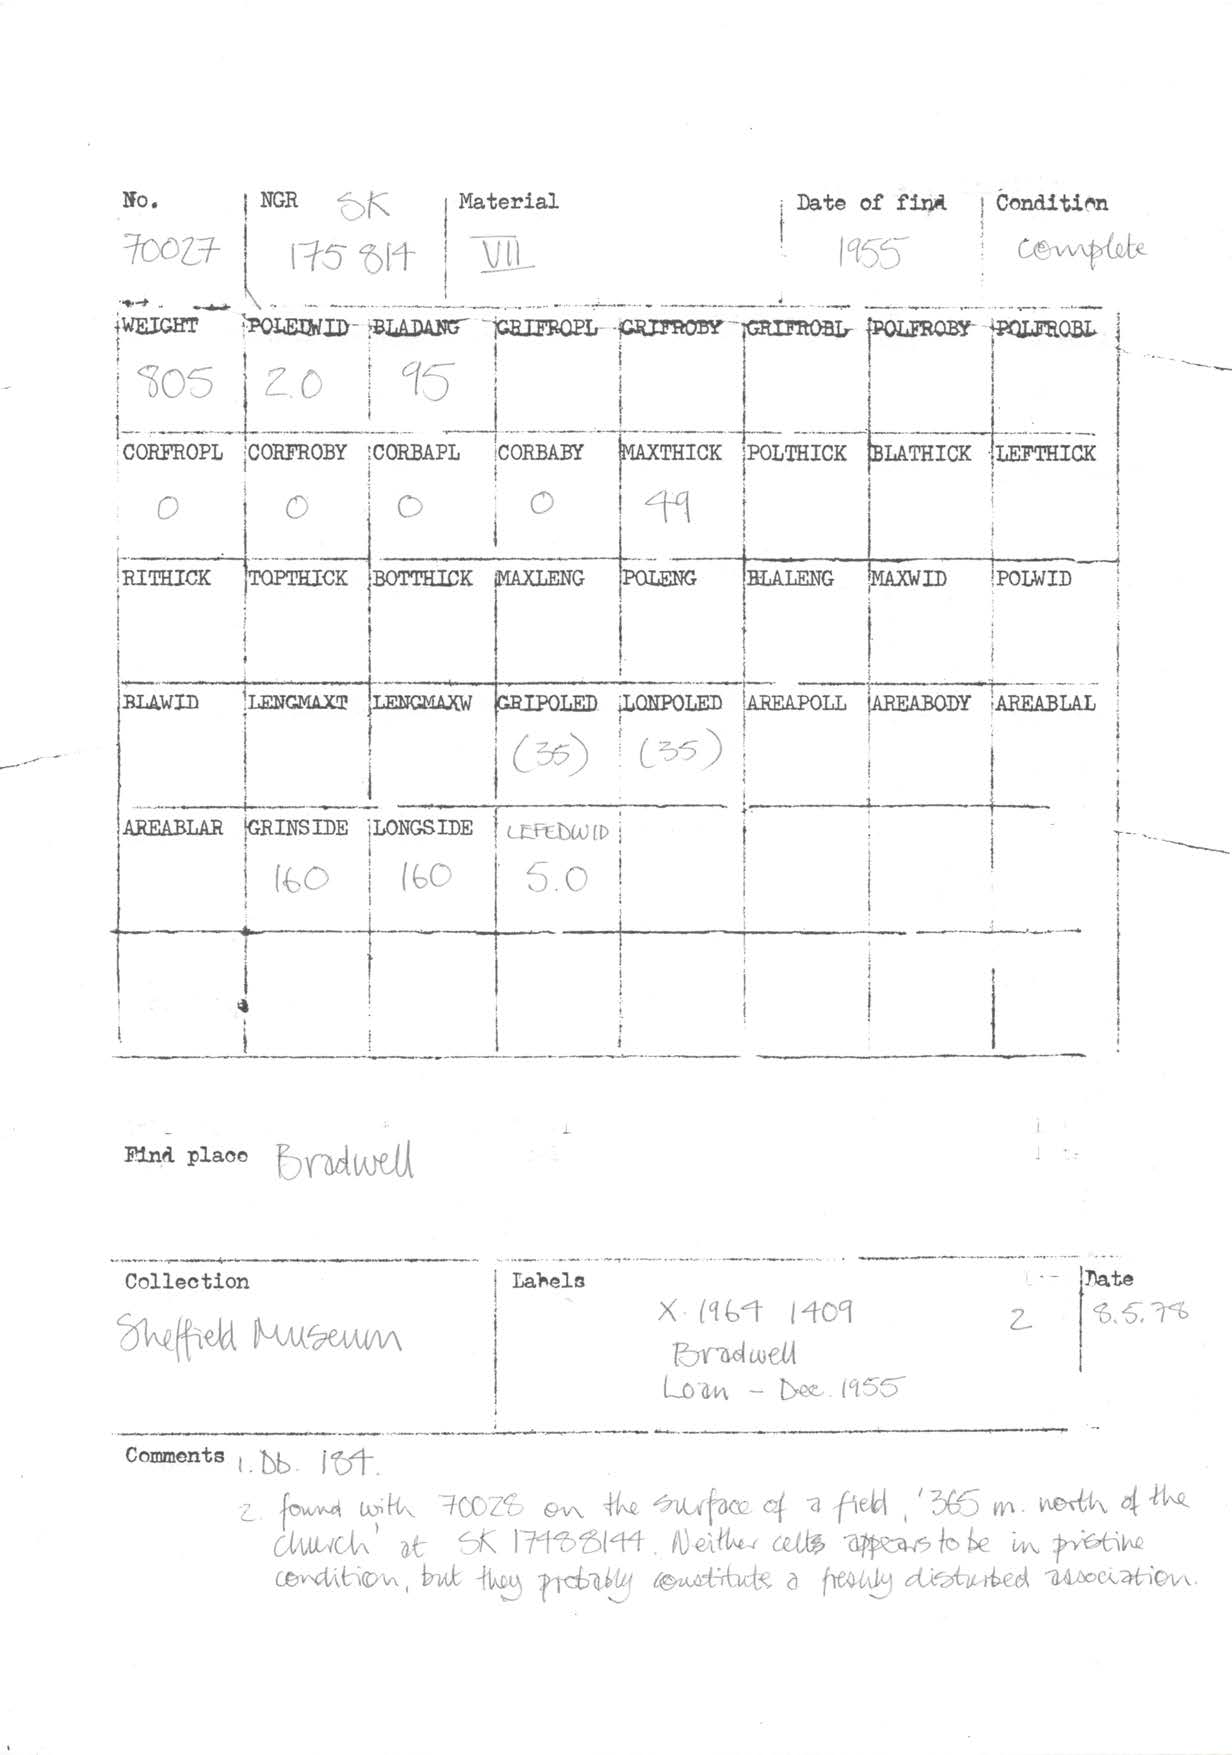 No. NGR SK Material Date of find Condition
70027 175 814 VII 1955 complete
WEIGHT POLEDWID BLADANG GRIFROPL GRIFROBY GRIFROBL POLFROBY POLFROBL
805 2.0 95
CORFROPL CORFROBY CORBAPL CORBABY MAXTHICK POLTHICK BLATHICK LEFTHICK
0 0 0 0 49
RITHICK TOPTHICK BOTTHICK MAXLENG POLENG BLALENG MAXWID POLWID
BLAWID LENGMAXT LENGMAXW GRIPOLED LONPOLED AREAPOLL AREABODY AREABLAL
(35) (35)
AREABLAR GRINSIDE LONGSIDE LEFEDWID
160 160 5.0
Find place Bradwell
Collection Labels Date
X. 1964 1409 2 8.5.78
Sheffield Museum Bradwell
Loan - Dec. 1955
Comments 1. Db. 184.
2. found with 70028 on the surface of a field, '365 m. north of the
church' at SK 17488144. Neither celts appears to be in pristine
condition, but they probably constitute a freshly disturbed association.